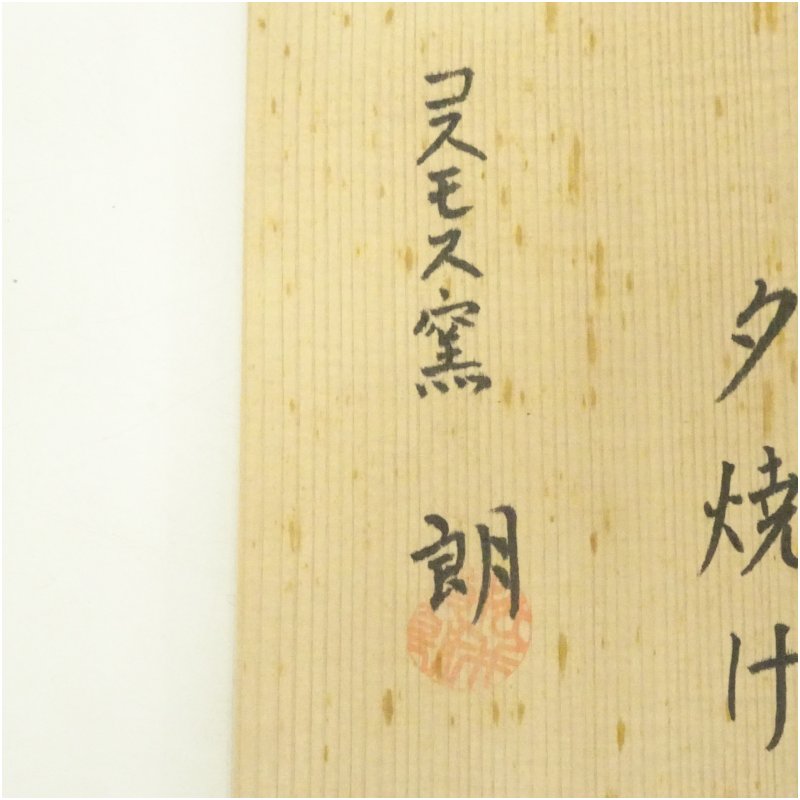 夕焼け
コスモス窯 朗